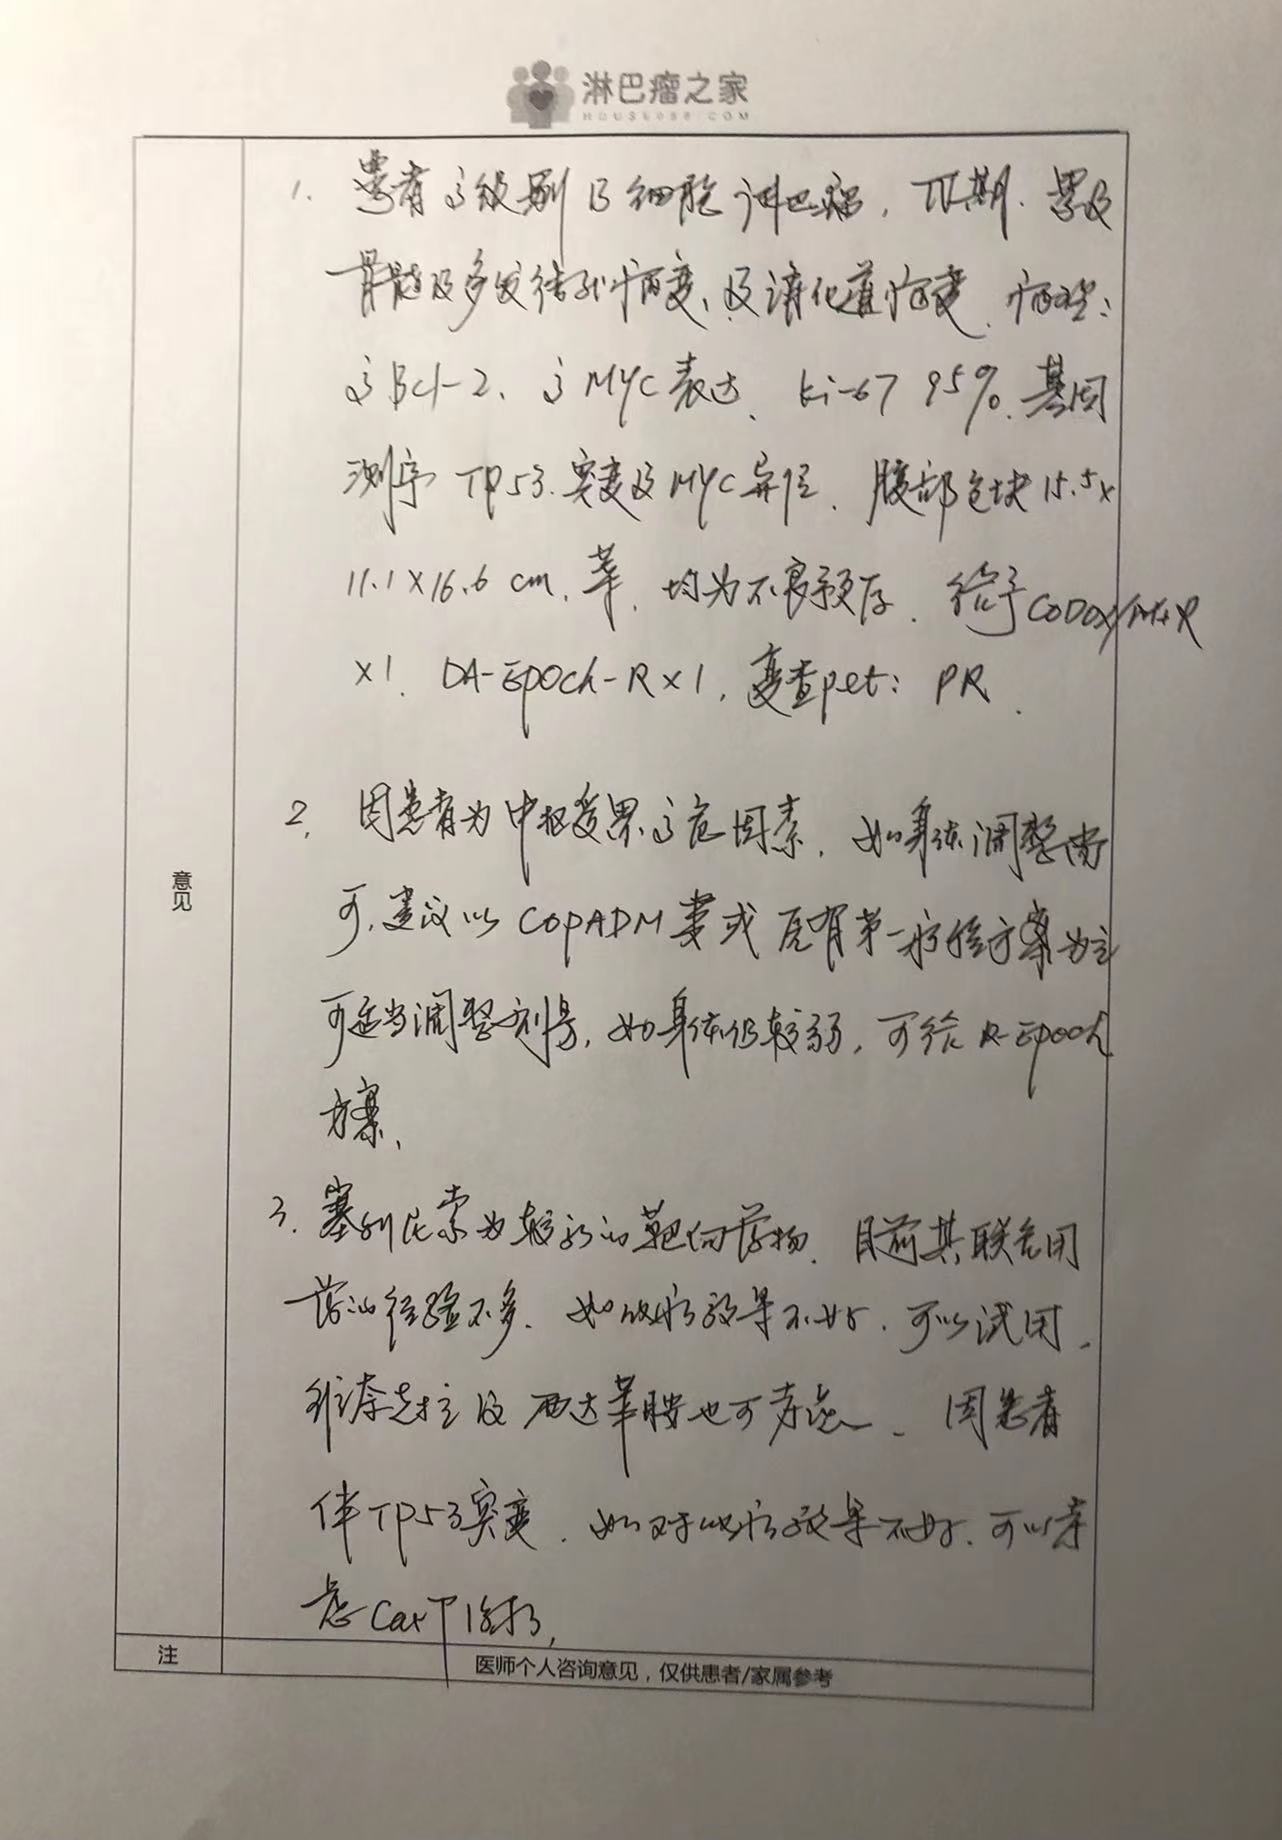 淋巴瘤之家
HOUSE086.COM
1. 患者高级别B细胞淋巴瘤，IV期，累及
骨髓及多发结外病变、及消化道病变、病理：
高Bcl-2、高MYC表达、ki-67 95%、基因
测序TP53突变及MYC异位、腹部包块15.5×
11.1×16.6 cm、等，均为不良预后、给予CODOX/MTX-R
×1、DA-EPOCH-R×1，复查pet：PR．
2. 因患者为中枢受累高危因素，如身体调整尚
意见
可，建议以COPADM等或原有第一疗程方案为主
可适当调整剂量，如身体仍较弱，可给R-EPOCH
方案、
3. 塞利尼索为较新的靶向药物、目前其联合用
药的经验不多、如化疗效果不好、可以试用、
维奈克拉及西达苯胺也可考虑、因患者
伴TP53突变、如对化疗效果不好、可以考
虑CarT治疗，
注 医师个人咨询意见，仅供患者/家属参考